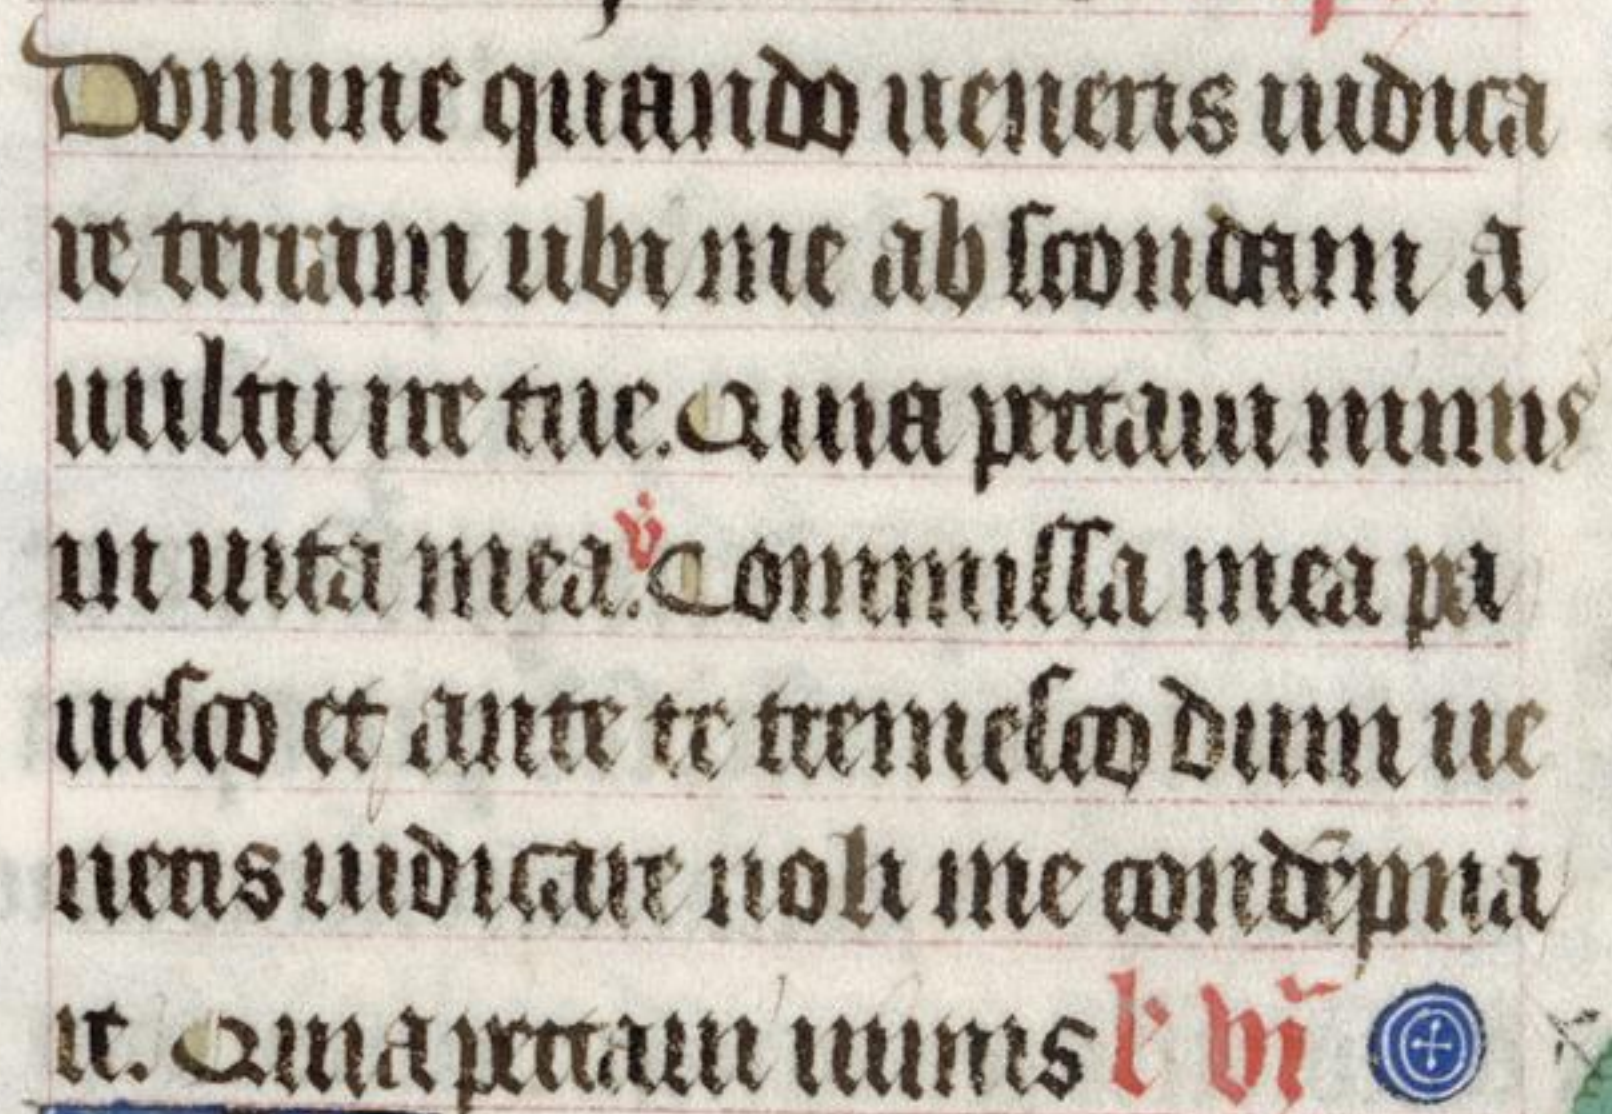 Domine quando ueneris iudica
re terram ubi me ab scondam a
uultu ire tue. Quia peccaui nimis
in uita mea. v̇ Commissa mea pa
uesco et ante te tremesco dum ue
neris iudicare noli me condēpna
re. Quia peccaui nimis l' vi